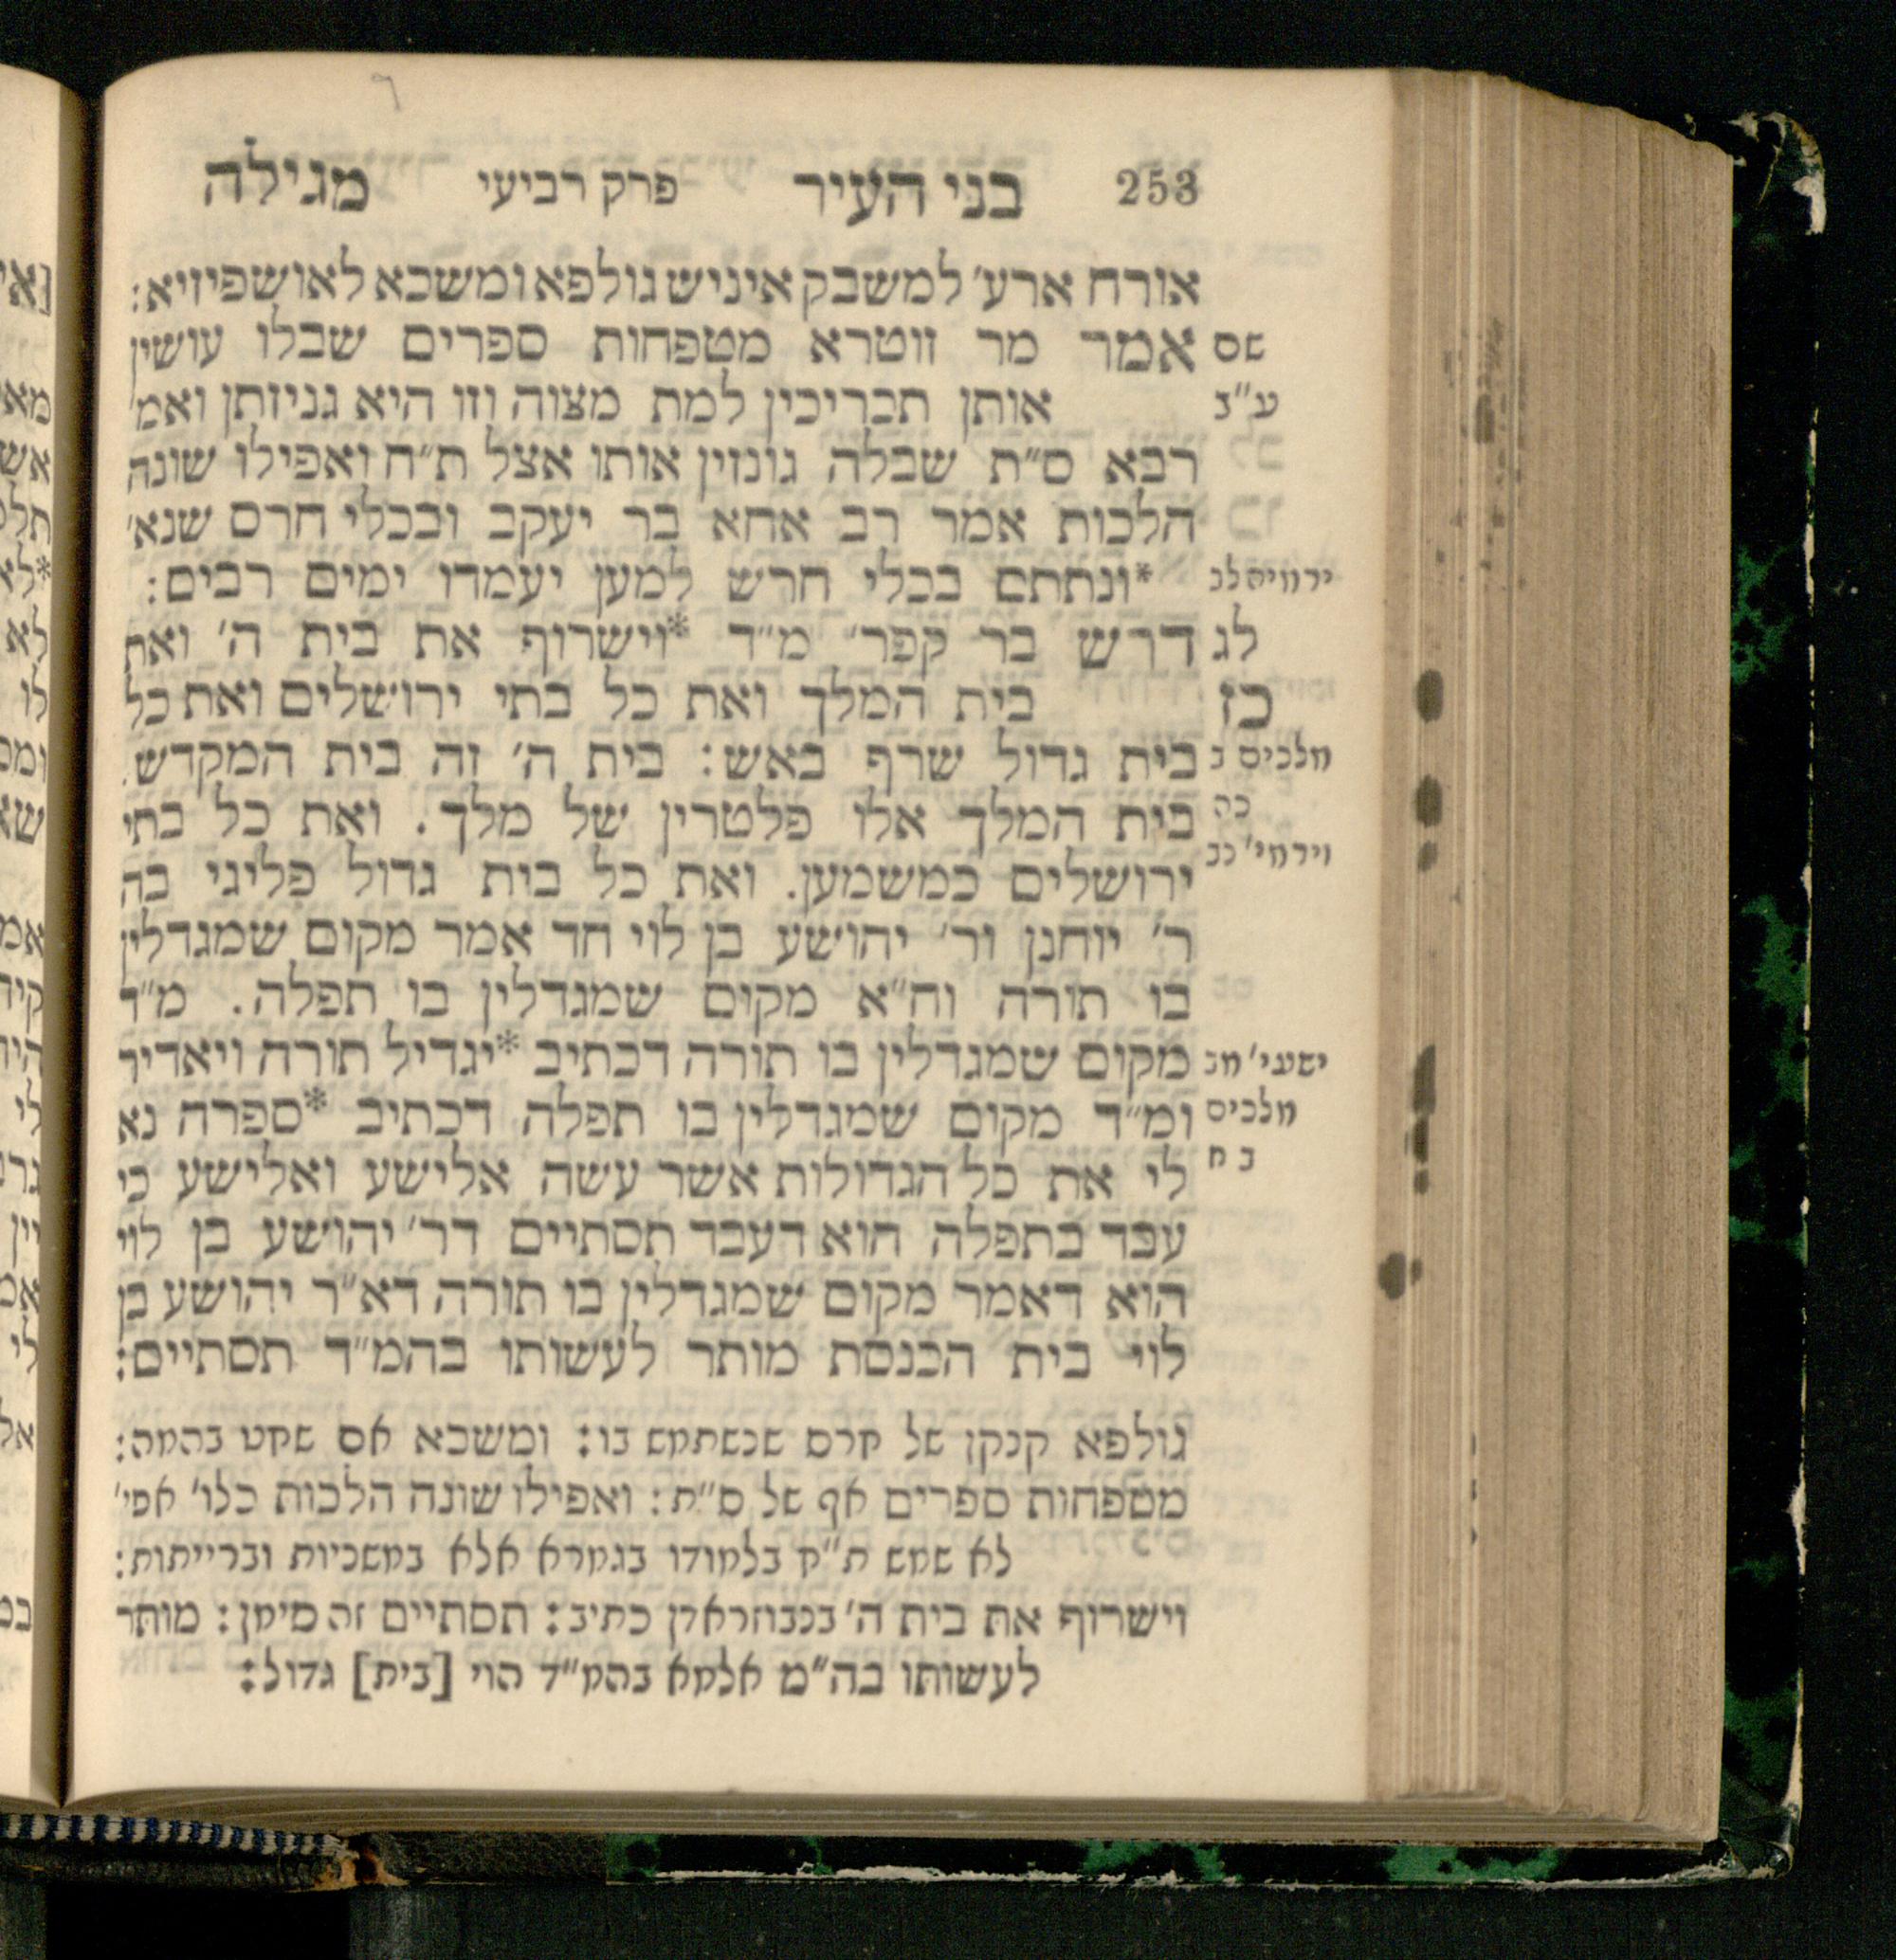 253 בני העיר פרק רביעי מגילה
אורח ארע׳ למשבק איניש גולפא ומשכא לאושפיזיא:
שם אמר מר זוטרא מטפחות ספרים שבלו עושין
ע״ב אותן תכריכין למת מצוה וזו היא גניזתן ואמ׳
רבא ס״ת שבלה גונזין אותו אצל ת״ח ואפילו שונה
הלכות אמר רב אחא בר יעקב ובכלי חרס שנא׳
ירמיה לב *ונתתם בכלי חרש למען יעמדו ימים רבים:
לג דרש בר קפר׳ מ״ד *וישרוף את בית ה׳ ואת
כז בית המלך ואת כל בתי ירושלים ואת כל
מלכים ב בית גדול שרף באש: בית ה׳ זה בית המקדש.
כה בית המלך אלו פלטרין של מלך. ואת כל בתי
וירמי׳ נב ירושלים כמשמען. ואת כל בית גדול פליגי בה
ר׳ יוחנן ור׳ יהושע בן לוי חד אמר מקום שמגדלין
בו תורה וח״א מקום שמגדלין בו תפלה. מ״ד
ישעי׳ מב מקום שמגדלין בו תורה דכתיב *יגדיל תורה ויאדיר
מלכים ומ״ד מקום שמגדלין בו תפלה דכתיב *ספרה נא
ב ח לי את כל הגדולות אשר עשה אלישע ואלישע כי
עבד בתפלה הוא דעבד תסתיים דר׳ יהושע בן לוי
הוא דאמר מקום שמגדלין בו תורה דא״ר יהושע בן
לוי בית הכנסת מותר לעשותו בהמ״ד תסתיים:
גולפא קנקן של חרס שנשתמש בו: ומשכא אם שחט בהמה:
מטפחות ספרים אף של ס״ת: ואפילו שונה הלכות כלו׳ אפי׳
לא שמש ת״ח בלמודו בגמרא אלא במשניות וברייתות:
וישרוף את בית ה׳ בנבוזראדן כתיב: תסתיים זה סימן: מותר
לעשותו בה״מ אלמא בהמ״ד הוי [בית] גדול: